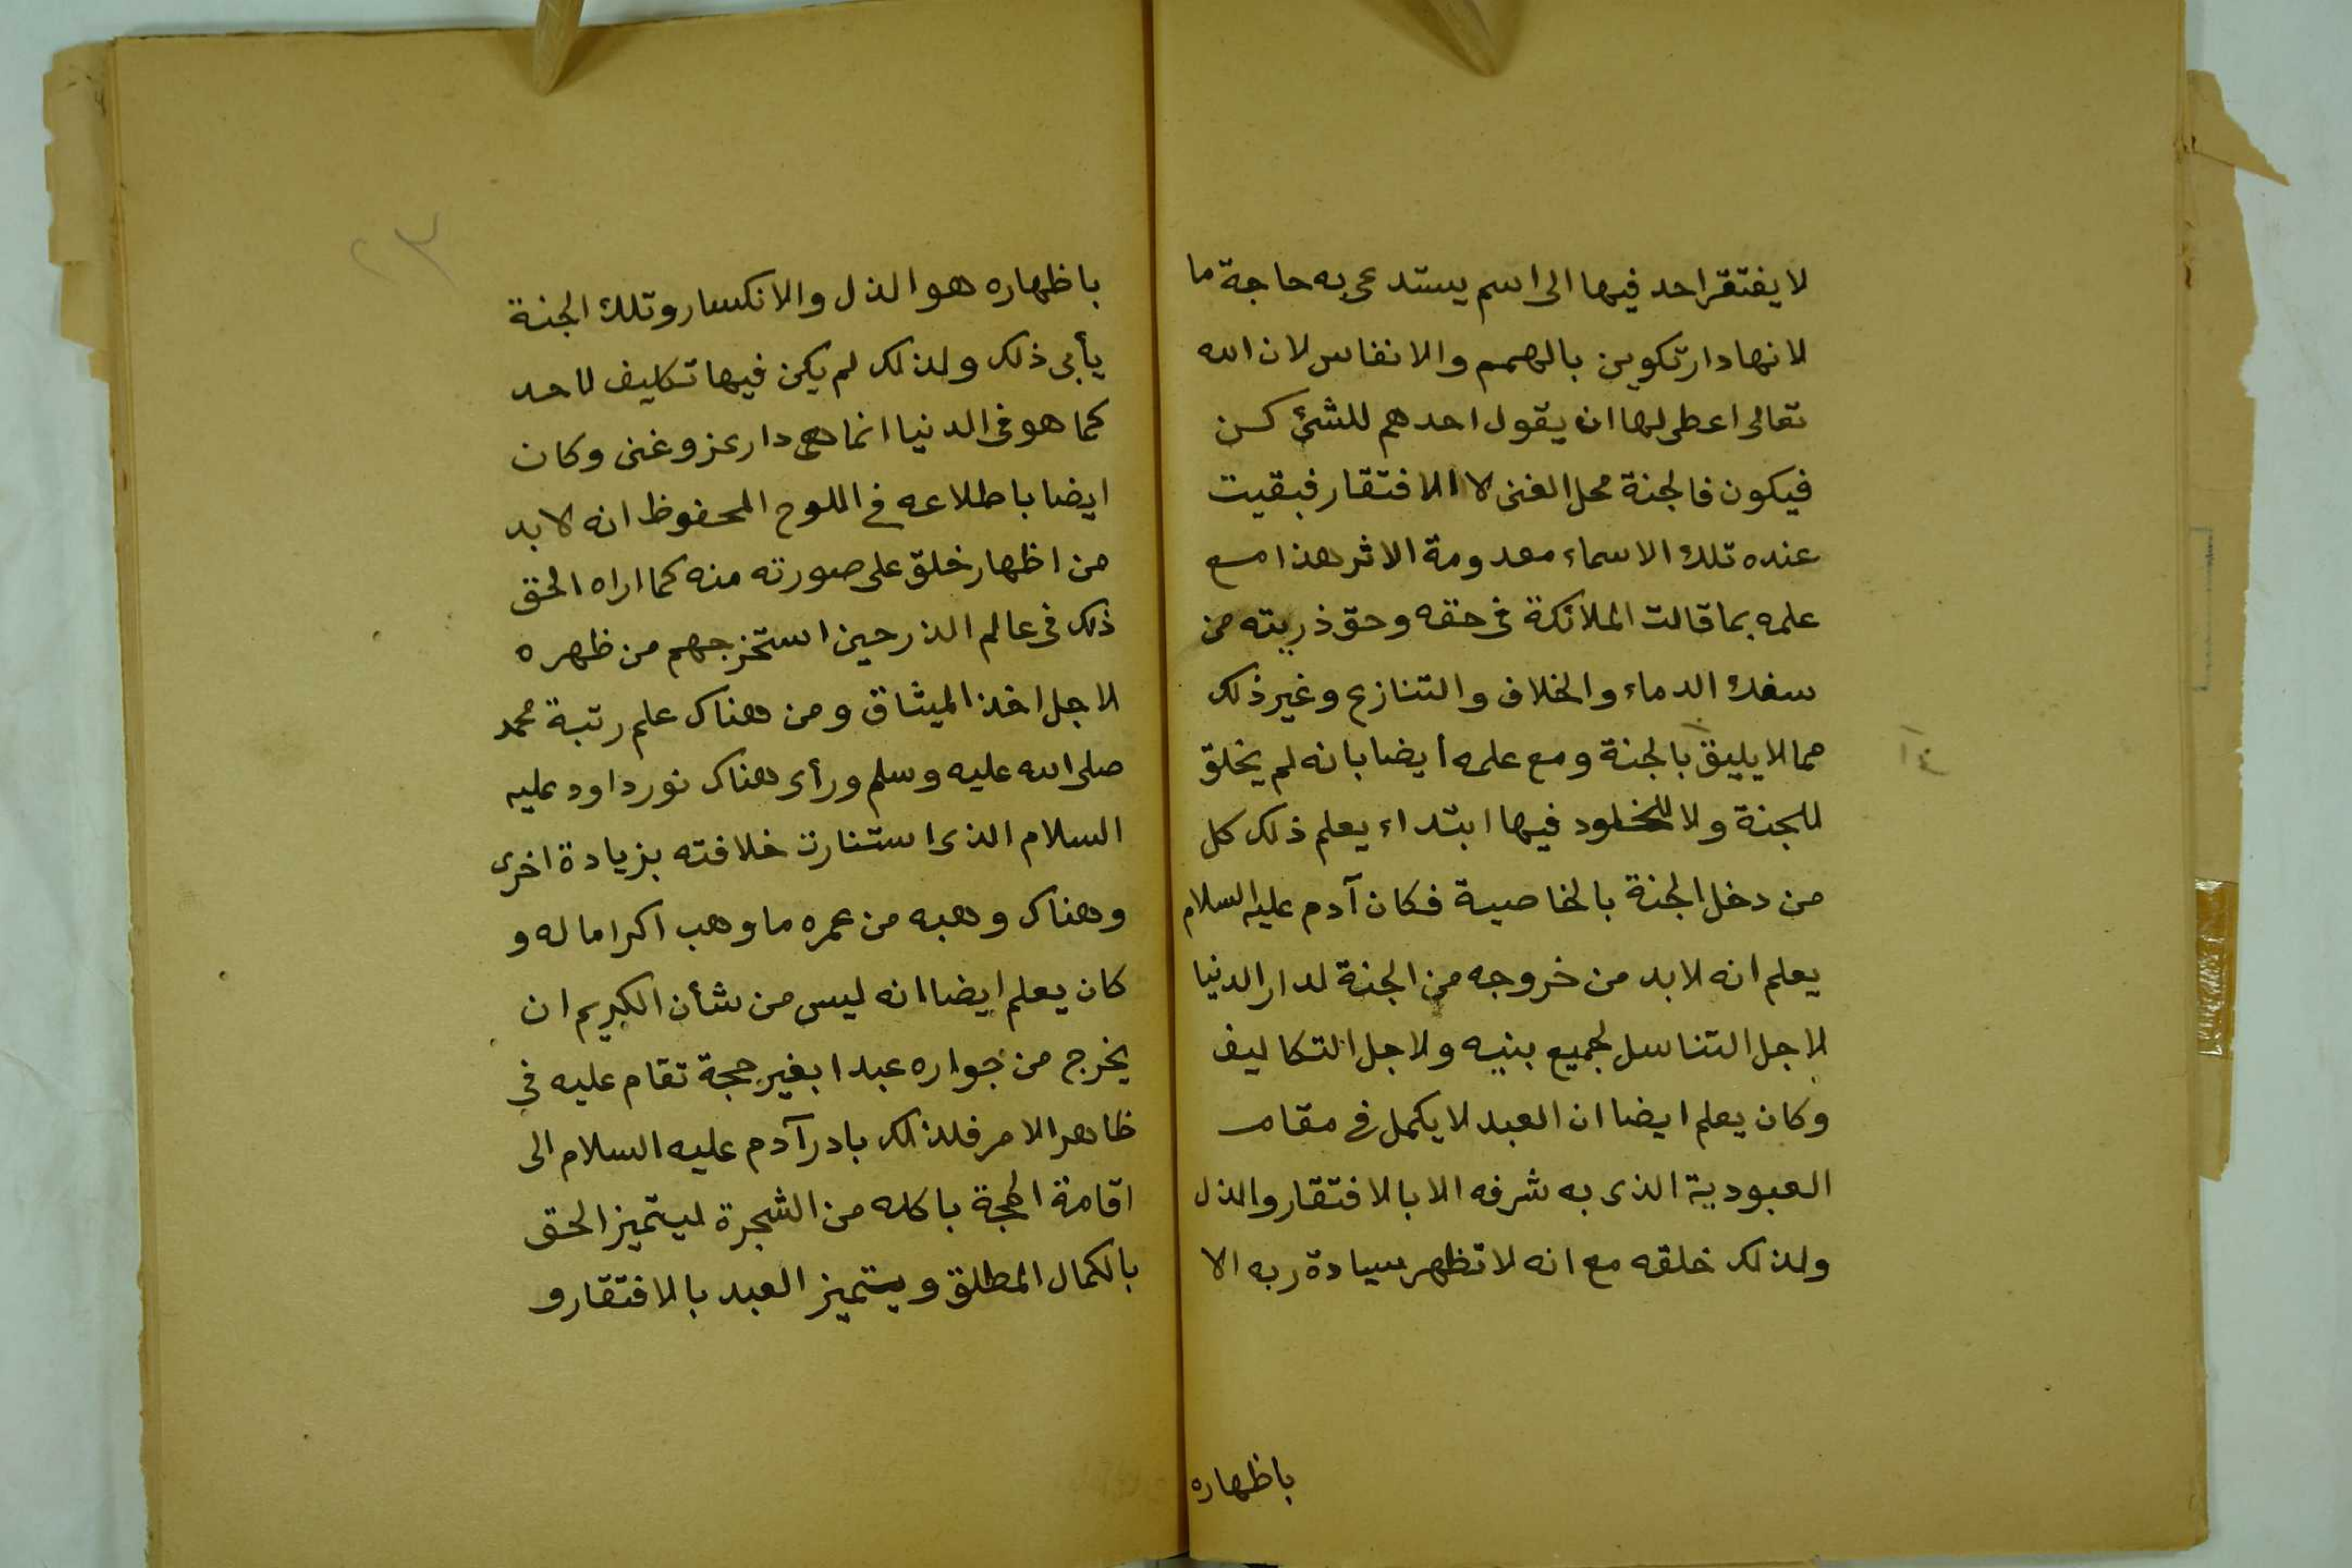 لا يفتقر احد فيها الى اسم يستدعى به حاجة ما
لانها دار تكوين بالهمم والانفاس لان الله
تعالى اعطى لها ان يقول احدهم للشئ كن
فيكون فالجنة محل الغنى لا الافتقار فبقيت
عنده تلك الاسماء معدومة الاثر هذا مع
علمه بما قالت الملائكة فى حقه وحق ذريته من
سفك الدماء والخلاف والتنازع وغير ذلك
مما لا يليق بالجنة ومع علمه أيضا بانه لم يخلق
للجنة ولا للخلود فيها ابتداء يعلم ذلك كل
من دخل الجنة بالخاصية فكان آدم عليه السلام
يعلم انه لابد من خروجه من الجنة لدار الدنيا
لاجل التناسل لجميع بنيه ولاجل التكاليف
وكان يعلم ايضا ان العبد لا يكمل فى مقام
العبودية الذى به شرفه الا بالافتقار والذل
ولذلك خلقه مع انه لا تظهر سيادة ربه الا
باظهاره
٢٣
باظهاره هو الذل والانكسار وتلك الجنة
يأبى ذلك ولذلك لم يكن فيها تكليف لاحد
كما هو فى الدنيا انما هى دار عز وغنى وكان
ايضا باطلاعه فى اللوح المحفوظ انه لابد
من اظهار خلق على صورته منه كما اراه الحق
ذلك فى عالم الذر حين استخرجهم من ظهره
لاجل اخذ الميثاق ومن هناك علم رتبة محمد
صلى الله عليه وسلم ورأى هناك نور داود عليه
السلام الذى استنارت خلافته بزيادة اخرى
وهناك وهبه من عمره ما وهب اكراما له و
كان يعلم ايضا انه ليس من شأن الكريم ان
يخرج من جواره عبدا بغير حجة تقام عليه فى
ظاهر الامر فلذلك بادر آدم عليه السلام الى
اقامة الحجة باكله من الشجرة ليتميز الحق
بالكمال المطلق ويتميز العبد بالافتقار و